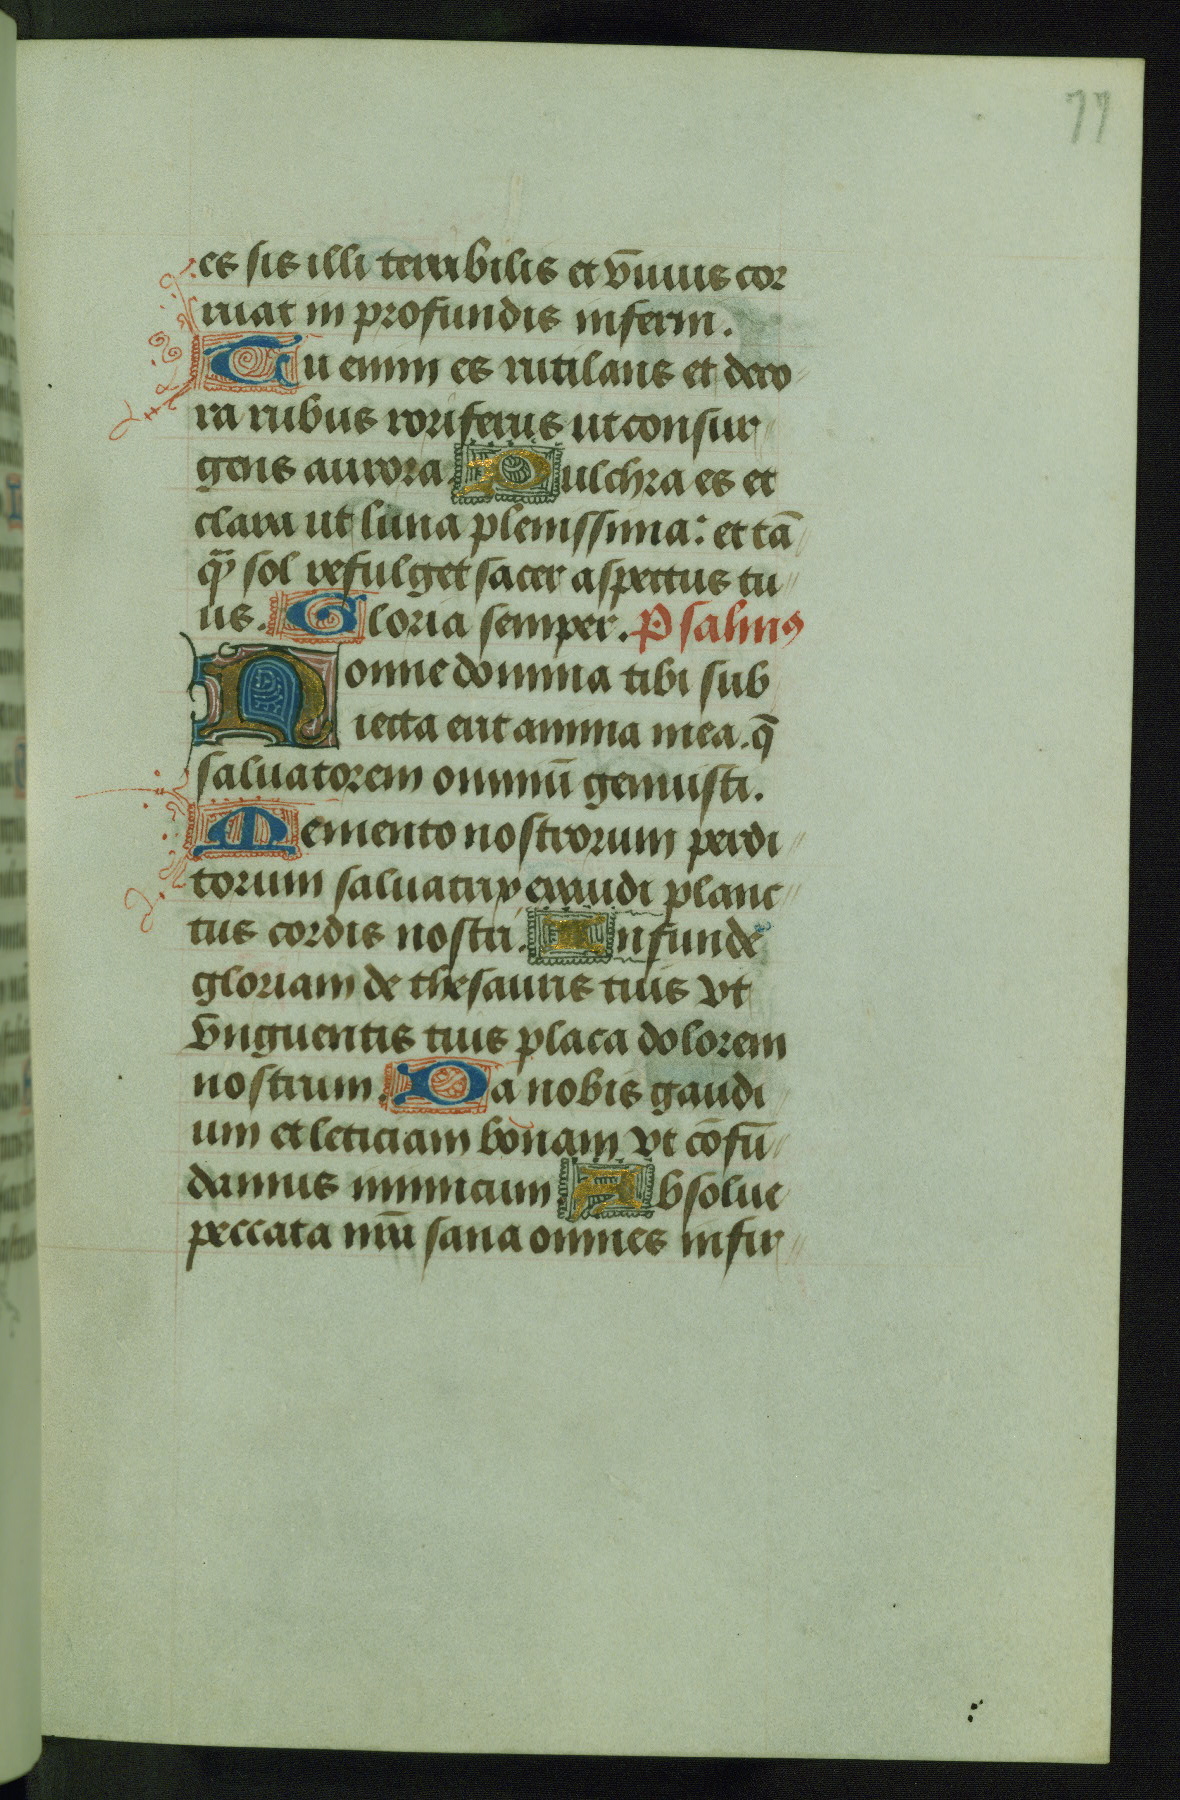 77
es sis illi terribilis et v̄nuus cor
ruat in profundis inferni.
Tu enim es rutilans et deco
ra rubus roriferus ut consur
gens aurora. Pulchra es et
clara ut luna plenissima: et tā
q̄ sol refulget sacer aspectus tu
us. Gloria semper. Psalmꝰ
Nonne domina tibi sub
iecta erit anima mea. q̄
saluatorem omniū genuisti.
Memento nostrorum perdi
torum saluatrix exaudi planc
tus cordis nostri. Infunde
gloriam de thesauris tuis vt
vnguentis tuis placa dolorem
nostrum. Da nobis gaudi
um et leticiam bonam vt cōfū
damus inimicum Absolue
peccata nr̄a sana omnes infir